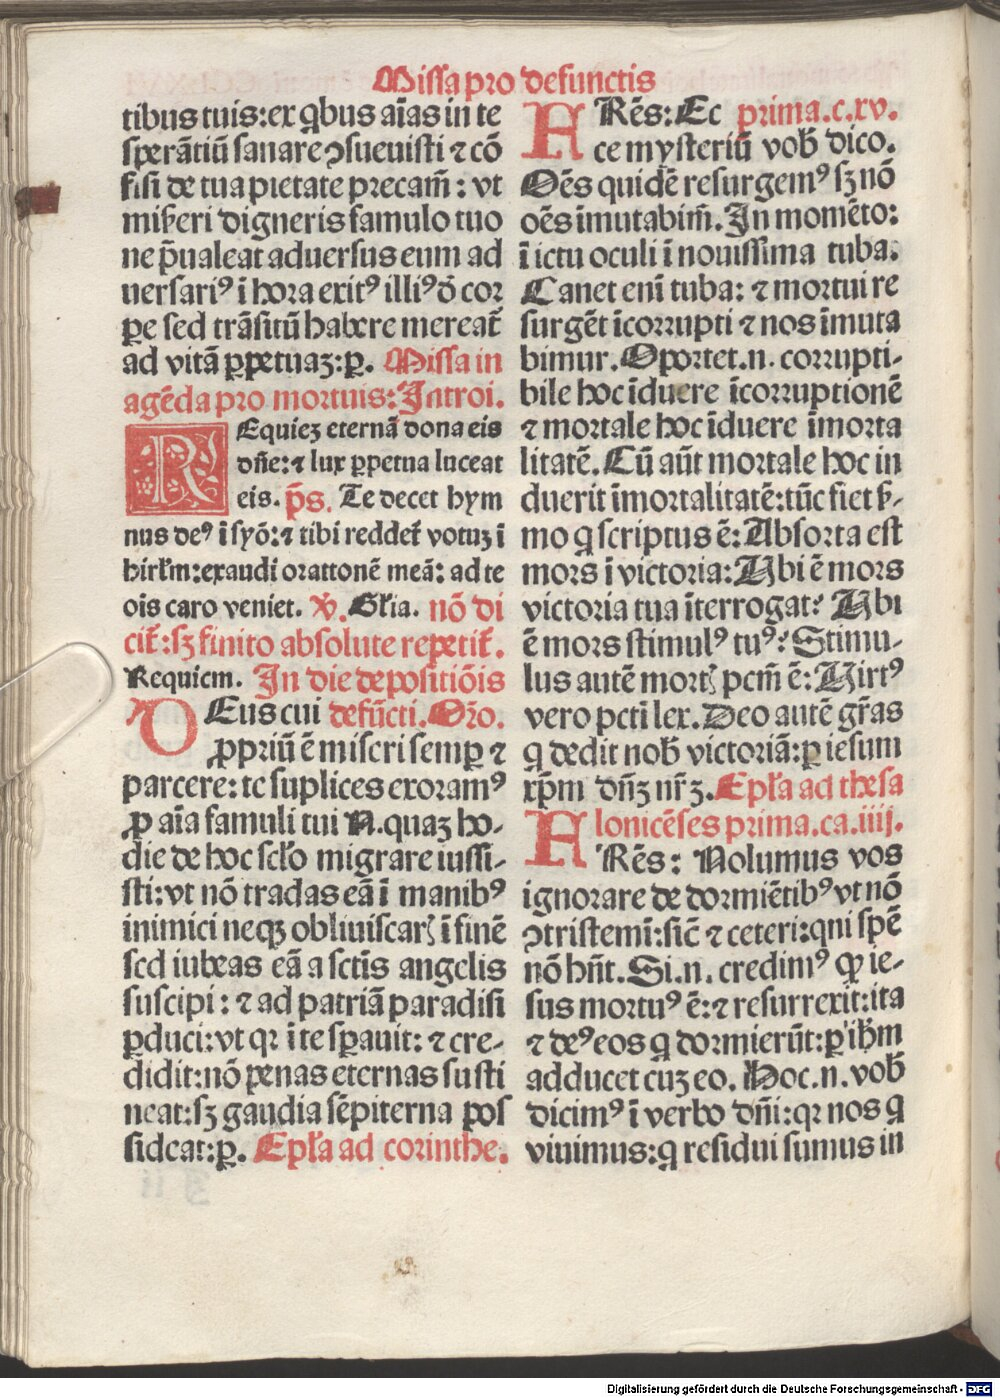 Missa pro defunctis
tibus tuis: ex qbus aīas in te
sperātiū sanare ꝯsueuisti ⁊ cō
fisi de tua pietate precam̄: vt
miẜeri digneris famulo tuo
ne p̄ualeat aduersus eum ad
uersariꝰ ī hora exitꝰ illiꝰ ō cor
ꝑe sed trāsitū habere mereat̄
ad vitā ꝑpetuaꝫ: ꝑ. Missa in
agēda pro mortuis: Introi.
REquieꝫ eternā dona eis
dn̄e: ⁊ lux ꝑpetua luceat
eis. p̄s. Te decet hym
nus deꝰ ī syō: ⁊ tibi reddet̄ votuꝫ ī
hirlm̄: exaudi orationē meā: ad te
oīs caro veniet. ℣. Gl̄ia. nō di
cit̄: sꝫ finito absolute repetit̄.
Requiem. In die depositiōis
DEus cui defūcti. Or̄o.
ꝓpriū ē misereri semꝑ ⁊
parcere: te suplices exoramꝰ
ꝓ aīa famuli tui N. quaꝫ ho-
die de hoc scl̄o migrare iussi-
sti: vt nō tradas eā ī manibꝰ
inimici neqꝫ obliuiscarꝭ ī finē
sed iubeas eā a sctīs angelis
suscipi: ⁊ ad patriā paradisi
ꝑduci: vt qr ī te sꝑauit: ⁊ cre-
didit: nō penas eternas susti
neat: sꝫ gaudia sēpiterna pos
sideat: ꝑ. Epl̄a ad corinthe.
FRēs: Ec prima. c. xv.
ce mysteriū vob̄ dico.
Oēs quidē resurgemꝰ sꝫ nō
oēs īmutabim̄. In momēto:
ī ictu oculi ī nouissima tuba.
Canet enī tuba: ⁊ mortui re
surgēt īcorrupti ⁊ nos īmuta
bimur. Oportet. n. corrupti-
bile hoc īduere īcorruptionē
⁊ mortale hoc īduere īmorta
litatē. Cū aūt mortale hoc in
duerit īmortalitatē: tūc fiet ẜ-
mo q scriptus ē: Absorta est
mors ī victoria: Ubi ē mors
victoria tua īterrogat? Ubi
ē mors stimulꝰ tuꝰ? Stimu-
lus autē mortꝭ pcm̄ ē: Uirtꝰ
vero pcti lex. Deo autē gr̄as
q dedit nob̄ victoriā: ꝑ iesum
xp̄m dn̄ꝫ nr̄ꝫ. Epl̄a ad thesa
lonicēses prima. ca. iiij.
FRēs: Nolumus vos
ignorare de dormiētibꝰ vt nō
ꝯtristemī: sic̄ ⁊ ceteri: qui spē
nō hn̄t. Si. n. credimꝰ ꝙ ie-
sus mortuꝰ ē: ⁊ resurrexit: ita
⁊ deꝰ eos q dormierūt: ꝑ ih̄m
adducet cuꝫ eo. Hoc. n. vob̄
dicimꝰ ī verbo dn̄i: qr nos q
viuimus: q residui sumus in
Digitalisierung gefördert durch die Deutsche Forschungsgemeinschaft - DFG